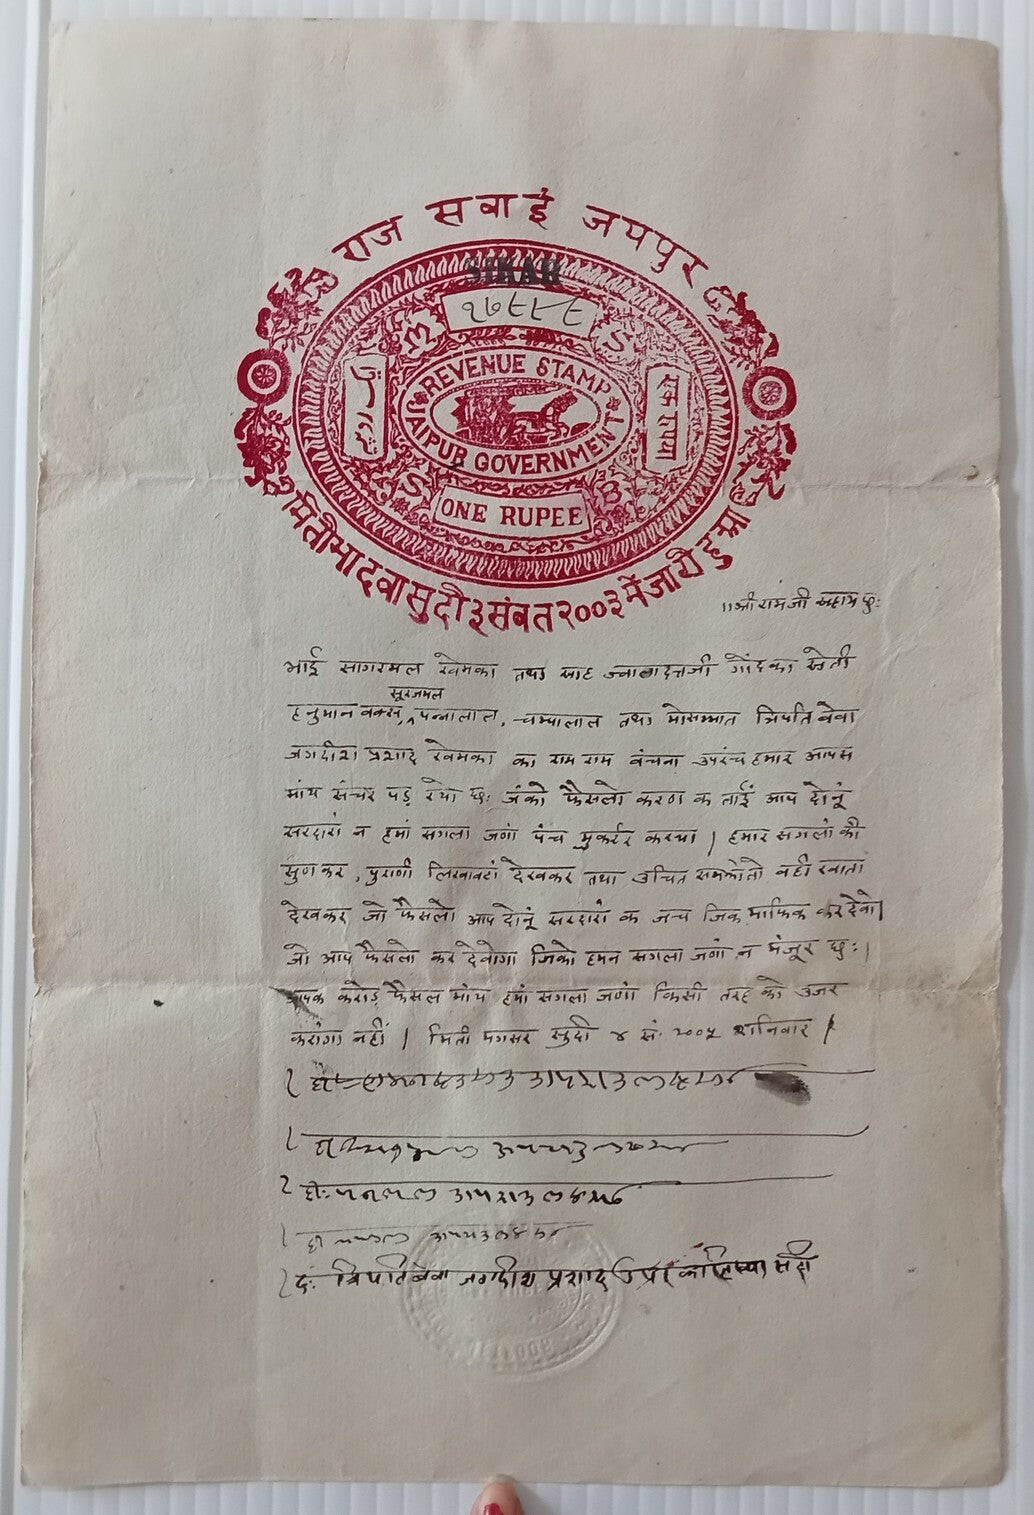 राज सवाई जयपुर
SIKAR
१७९९९
REVENUE STAMP
JAIPUR GOVERNMENT
एक रुपया
ONE RUPEE
मिती भादवा सुदी ३ संवत २००३ में जारी हुआ
॥श्री रामजी सहाय छ:
भाई सागरमल खेमका तथा साह ज्वालादत्तजी गोंदका सेती
सूरजमल
हनुमान बक्स, पन्नालाल, चम्पालाल तथा मोसम्मात त्रिपति बेवा
जगदीश प्रशाद खेमका का राम राम बंचना उपरंच हमार आपस
मांय संचर पड़ रयो छ: जंको फैसलो करण क ताईं आप दोनूं
सरदारां न हमां सगला जणां पंच मुकर्रर करया | हमार सगलां की
सुण कर, पुराणी लिखावटां देखकर तथा उचित समझो तो बही खाता
देखकर जो फैसलो आप दोनूं सरदारां क जच जिक माफिक कर देवो|
जो आप फैसलो कर देवोगा जिको हमन सगला जणां न मंजूर छ: |
आपक करोड़ फैसल मांय हमां सगला जणां किसी तरह को उजर
करांगा नहीं | मिती मगसर सुदी ४ सं. २००५ शनिवार |
द: त्रिपति बेवा जगदीश प्रशाद उपर को लिख्या सही